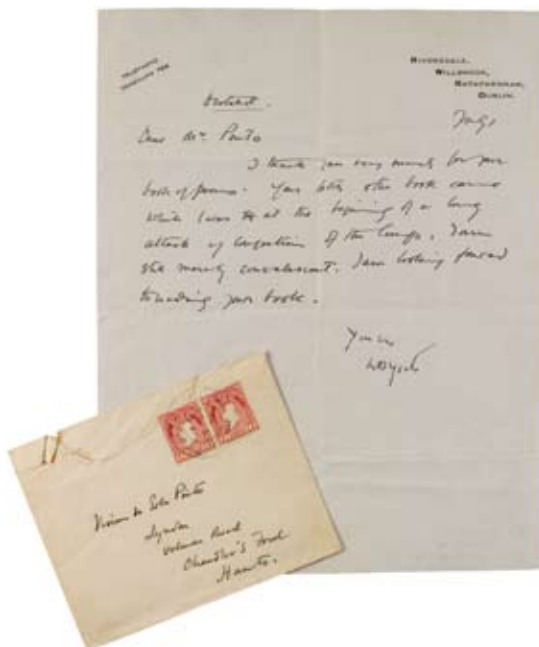 TELEPHONE
RIVERSDALE,
WILLBROOK,
RATHFARNHAM,
DUBLIN.
Dear Mr Pinto
I thank you very much for your
book of poems. Your letter & the book came
while I was at the beginning of a long
attack of congestion of the lungs. I am
still merely convalescent. I am looking forward
to reading your book.
Yours
WB Yeats
Vivian de Sola Pinto
Road
Chandler's Ford
Hants.